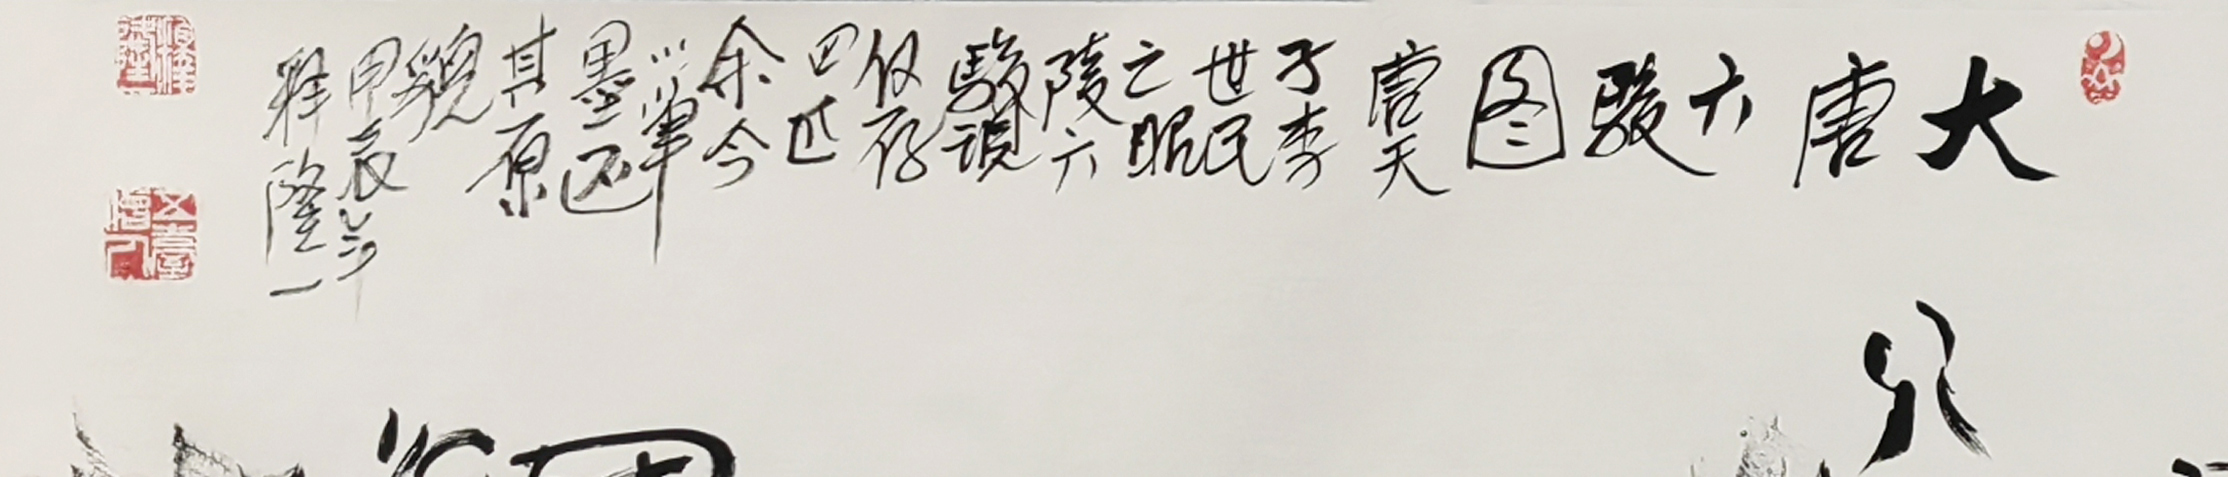 大
唐
六
骏
图
唐天
子李
世民
之昭
陵六
骏現
仅存
四匹
余今
以筆
墨还
其原
貌
甲辰年
释隆一
五臺僧人